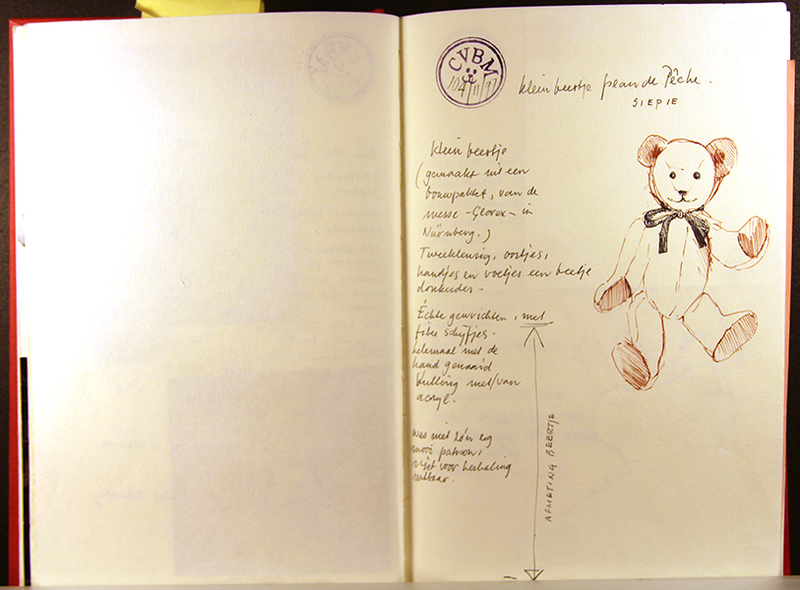 CVBM
104/11/97
klein beertje peau de Pêche.
SIEPIE
klein beertje
(gemaakt uit een
bouwpakket, van de
messe - Glorex - in
Nürnberg.)
Tweekleurig, oortjes,
handjes en voetjes een beetje
donkerder -
Échte gewrichten, met
fiber schijfjes.
helemaal met de
hand genaaid
Vulling met/van
acryl.
was niet zó'n erg
mooi patroon,
niet voor herhaling
vatbaar.
AFMETING BEERTJE